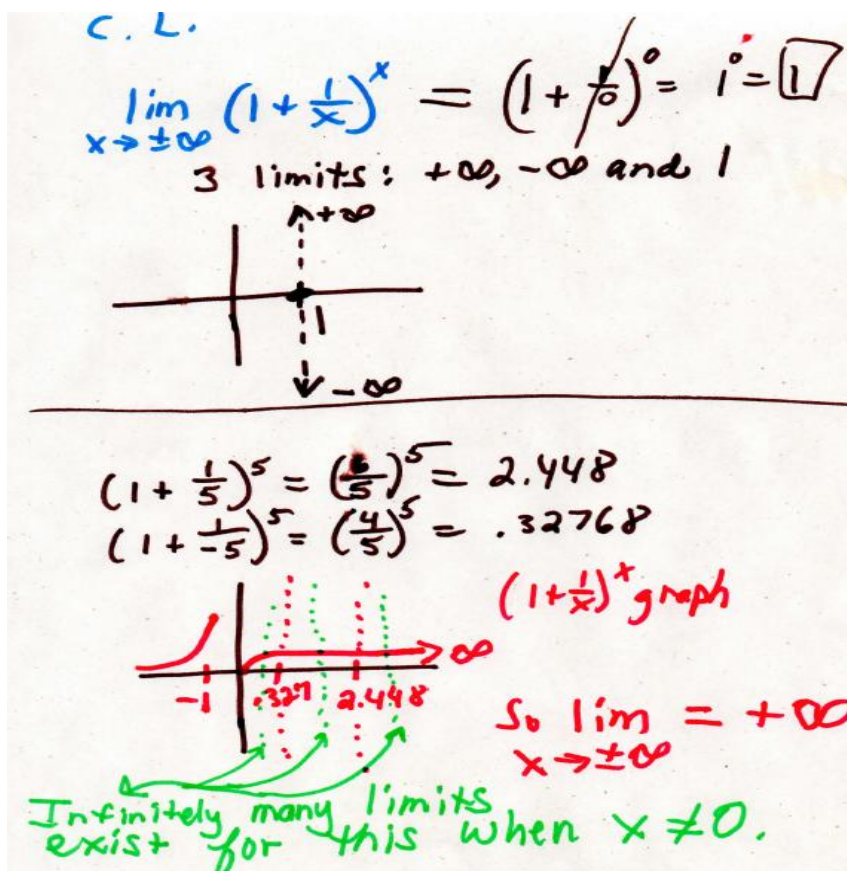 C. L.
lim (1 + 1/x)^x = (1 + 1/0)^0 = 1^0 = 1
x → ±∞
3 limits: +∞, -∞ and 1
+∞
1
-∞
(1 + 1/5)^5 = (6/5)^5 = 2.448
(1 + 1/-5)^5 = (4/5)^5 = .32768
(1+1/x)^x graph
∞
-1 .327 2.448
So lim = +∞
x → ±∞
Infinitely many limits
exist for this when x ≠ 0.